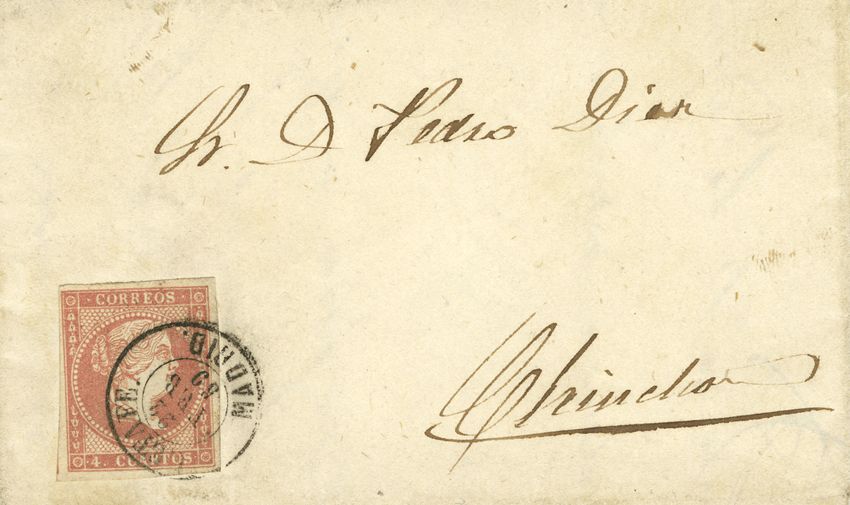 Sr. D Pedro Diaz
Chinchon
CORREOS
4. CUARTOS
MADRID.